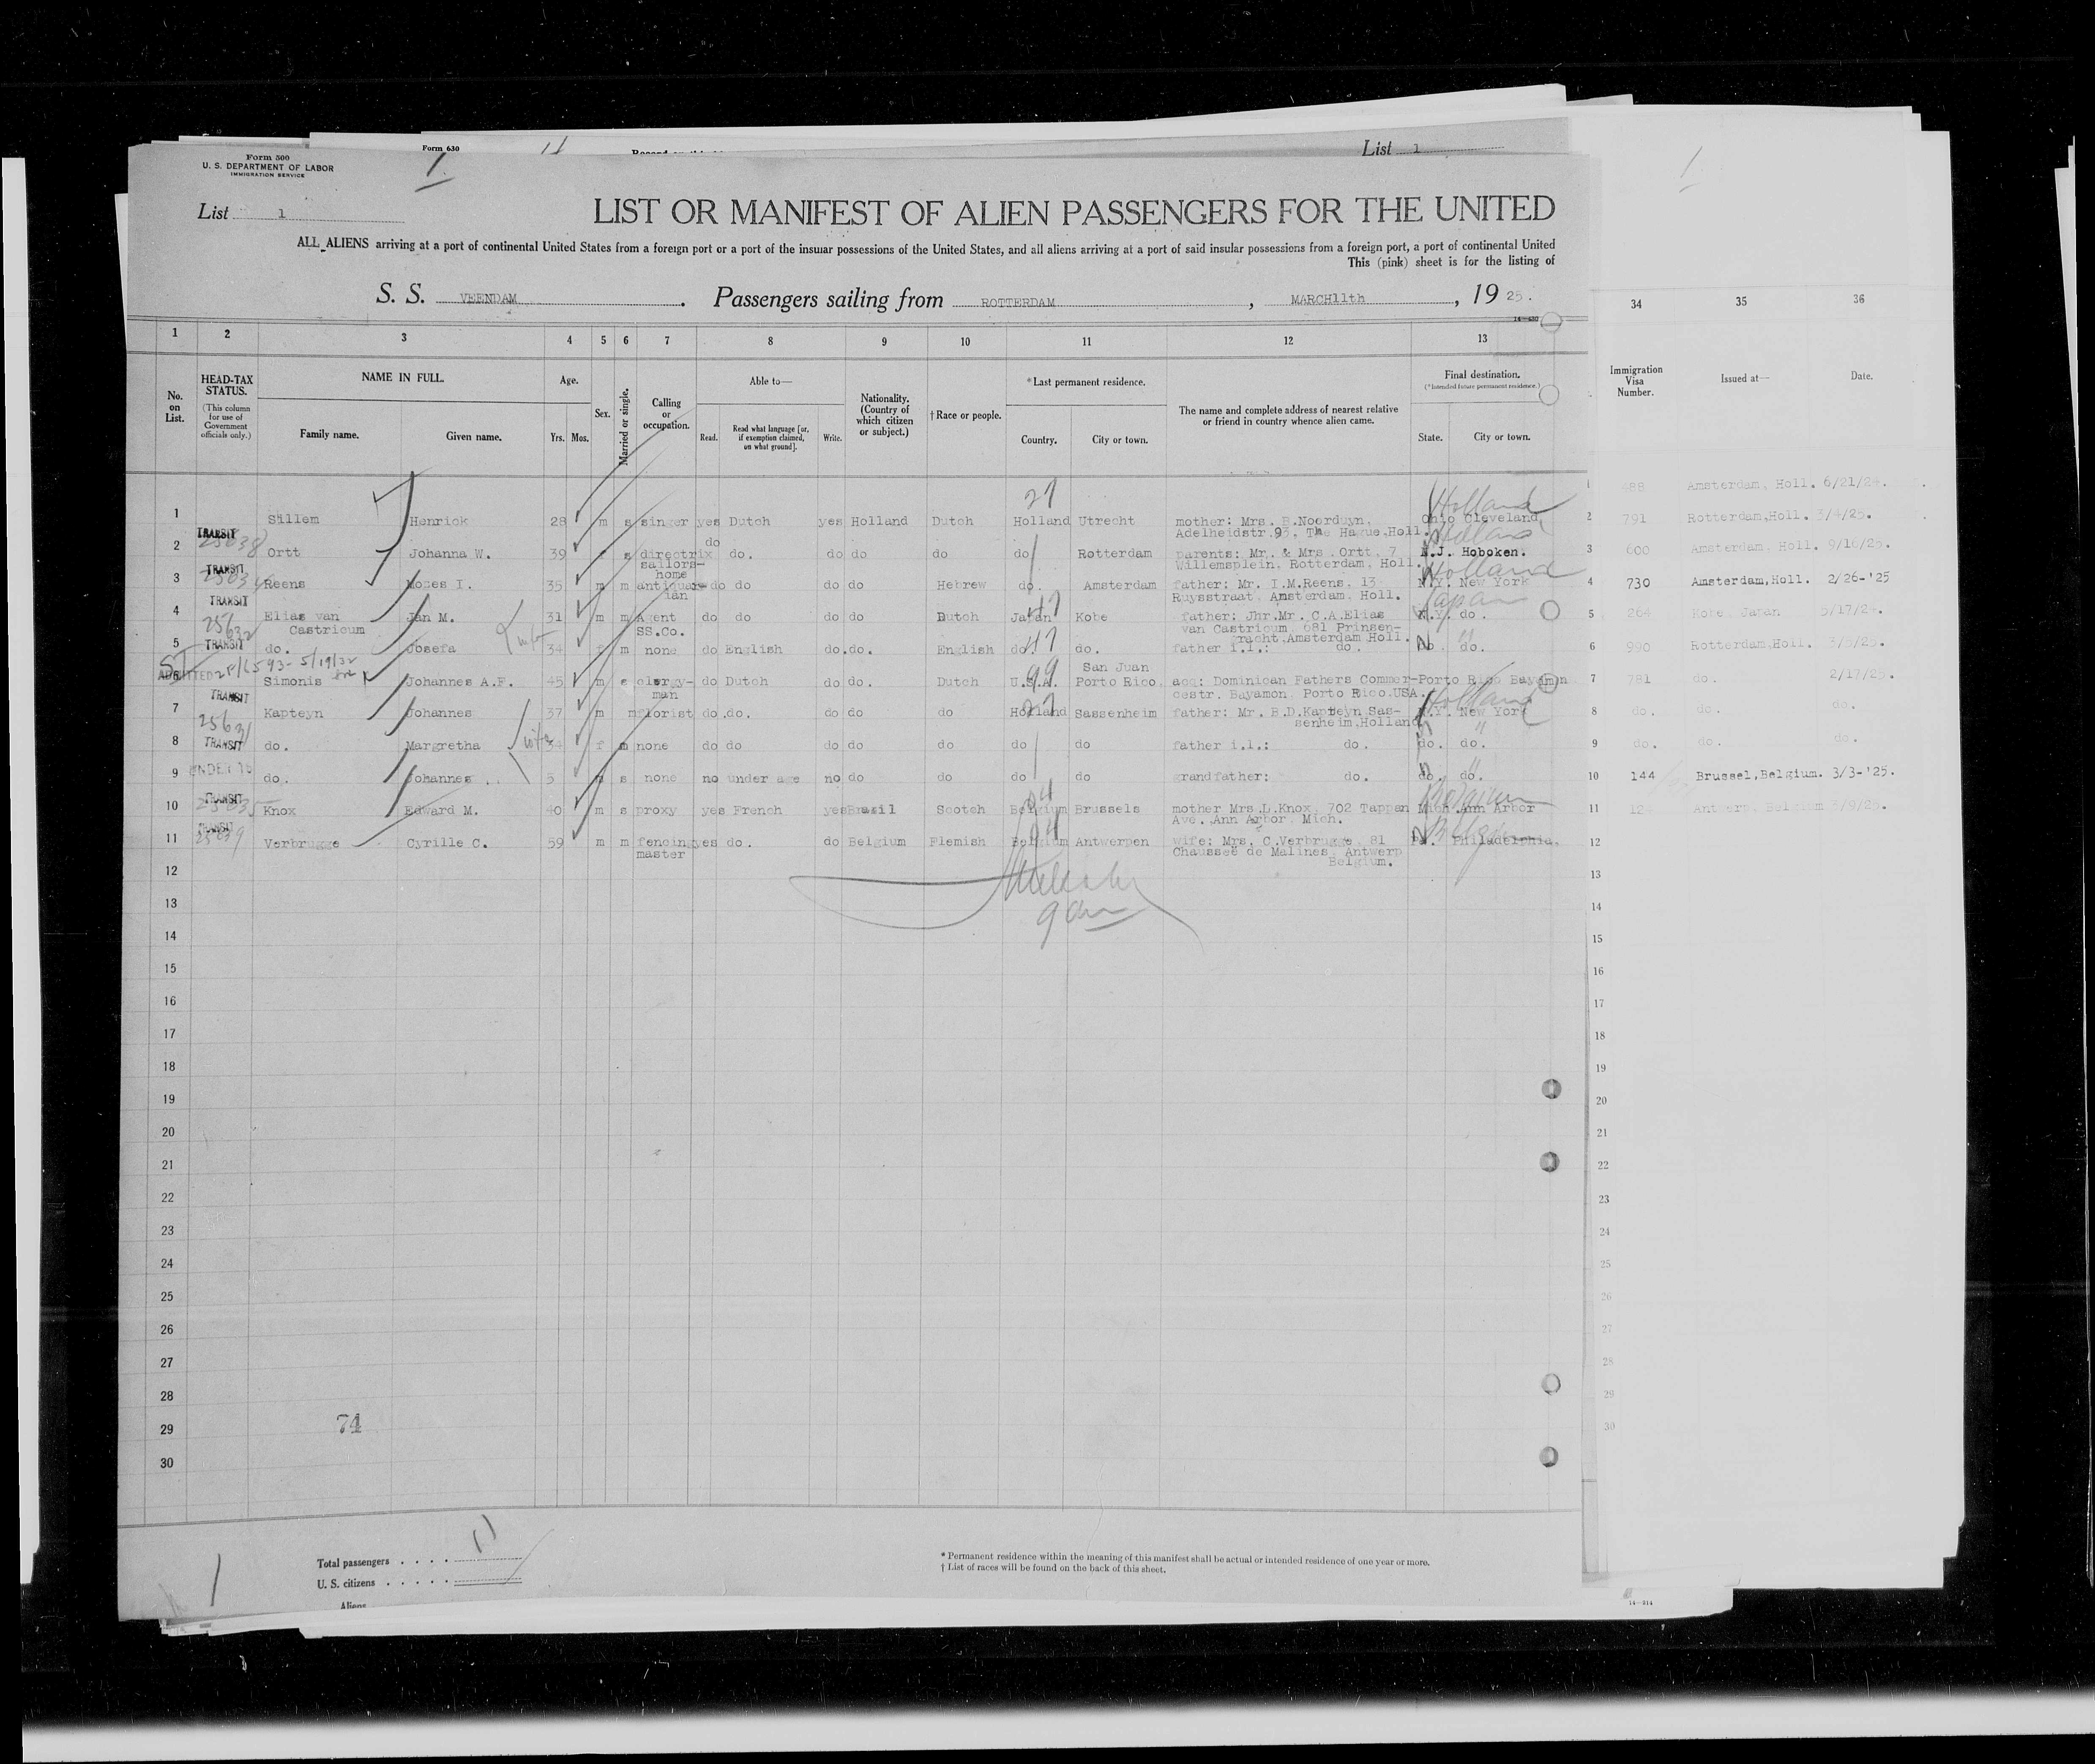 Form 630
List 1
Form 500
U. S. DEPARTMENT OF LABOR
IMMIGRATION SERVICE
1
List 1
LIST OR MANIFEST OF ALIEN PASSENGERS FOR THE UNITED
ALL ALIENS arriving at a port of continental United States from a foreign port or a port of the insuar possessions of the United States, and all aliens arriving at a port of said insular possessions from a foreign port, a port of continental United
This (pink) sheet is for the listing of
S. S. VEENDAM. Passengers sailing from ROTTERDAM, MARCH11th, 19 25.
1 2 3 4 5 6 7 8 9 10 11 12 13 34 35 36
No. on List.
HEAD-TAX STATUS.
(This column for use of Government officials only.)
NAME IN FULL.
Family name. Given name.
Age.
Yrs. Mos.
Sex.
Married or single.
Calling or occupation.
Able to—
Read. Read what language [or, if exemption claimed, on what ground]. Write.
Nationality. (Country of which citizen or subject.)
† Race or people.
*Last permanent residence.
Country. City or town.
The name and complete address of nearest relative or friend in country whence alien came.
Final destination.
(*Intended future permanent residence.)
State. City or town.
Immigration Visa Number.
Issued at—
Date.
27 Holland
1 Sillem Henrick 28 m s singer yes Dutch yes Holland Dutch Holland Utrecht mother: Mrs. B.Noorduyn, Ohio Cleveland
Adelheidstr.93, The Hague.Holl.
TRANSIT
2 Ortt Johanna W. 39 f s directrix do do. do do do do Rotterdam parents: Mr. & Mrs. Ortt, 7 N.J. Hoboken.
sailors-home Willemsplein, Rotterdam, Holl.
TRANSIT Holland
3 Reens Mozes I. 35 m m antiquar-ian do do do do Hebrew do. Amsterdam father: Mr. I.M.Reens, 13 N.Y. New York
Ruysstraat, Amsterdam, Holl.
TRANSIT Japan
4 Elias van Castricum Jan M. 31 m m Agent SS.Co. do do do do Dutch Japan Kobe father: Jhr.Mr. C.A.Elias N.Y. do.
van Castricum, 681 Prinsen-
gracht.Amsterdam Holl.
5 TRANSIT do. Josefa 34 f m none do English do.do. English do do. father i.l.: do. do. do.
6 ADMITTED Simonis Johannes A.F. 45 m s clergy-man do Dutch do do. Dutch U.S.A. San Juan Porto Rico acq: Dominican Fathers Commer-Porto Rico Bayamon
cestr. Bayamon, Porto Rico.USA.
TRANSIT Holland
7 Kapteyn Johannes 37 m m florist do do. do do do Holland Sassenheim father: Mr. B.D.Kapteyn Sas- N.Y. New York
senheim,Holland
8 TRANSIT do. Margretha wife 34 f m none do do do do do do do father i.l.: do. do. do.
9 UNDER 16 do. Johannes 5 m s none no under age no do do do do grandfather: do. do. do.
TRANSIT Belgium
10 Knox Edward M. 40 m s proxy yes French yes Brasil Scotch Belgium Brussels mother Mrs.D.Knox, 702 Tappan Mich.Ann Arbor
Ave. Ann Arbor, Mich.
TRANSIT Belgium
11 Verbrugge Cyrille C. 59 m m fencing master yes do. do Belgium Flemish Belgium Antwerpen wife: Mrs. C.Verbrugge, 81 Pa. Philadelphia.
Chaussee de Malines, Antwerp
Belgium.
12
13
14
15
16
17
18
19
20
21
22
23
24
25
26
27
28
29
30
74
1 488 Amsterdam, Holl. 6/21/24.
2 791 Rotterdam,Holl. 3/4/25.
3 600 Amsterdam, Holl. 9/16/25.
4 730 Amsterdam,Holl. 2/26-'25
5 264 Kobe, Japan
6 990 Rotterdam,Holl. 3/3/25.
7 781 do. 2/17/25.
8 do. do. do.
9 do. do. do.
10 144 Brussel,Belgium. 3/3-'25.
11 Antwerp, Belgium 3/9/25.
12
13
14
15
16
17
18
19
20
21
22
23
24
25
26
27
28
29
30
Total passengers . . . . 11
U. S. citizens . . . . .
Aliens
* Permanent residence within the meaning of this manifest shall be actual or intended residence of one year or more.
† List of races will be found on the back of this sheet.